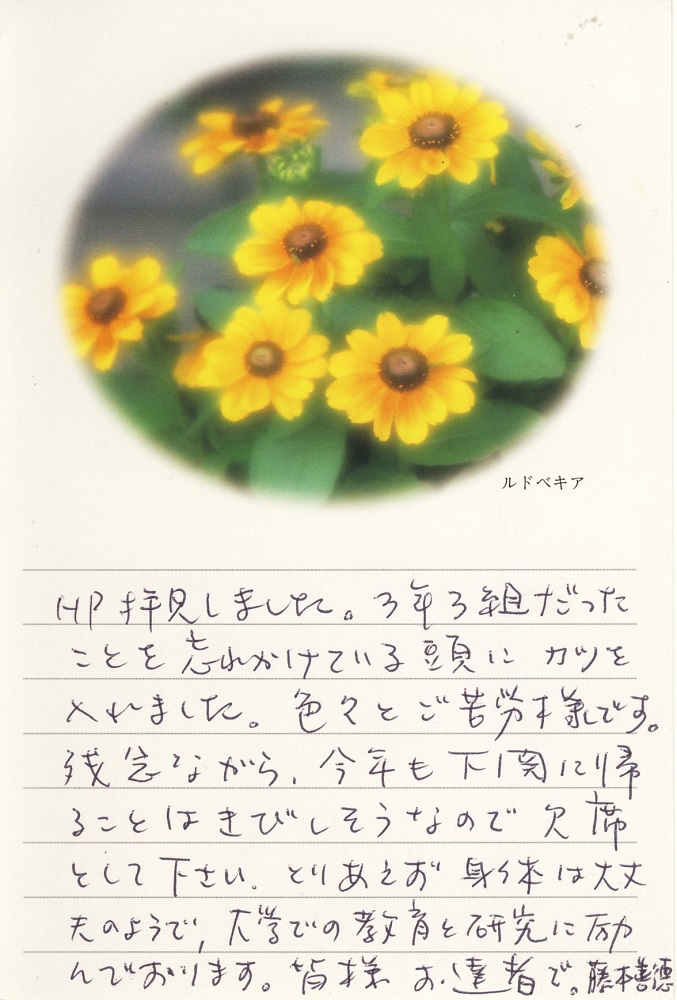 ルドベキア
HP拝見しました。3年3組だった
ことを忘れかけている頭にカツを
入れました。色々とご苦労様です。
残念ながら、今年も下関に帰
ることはきびしそうなので欠席
として下さい。とりあえず身体は大丈
夫のようで、大学での教育と研究に励
んでおります。皆様お達者で。藤本善徳